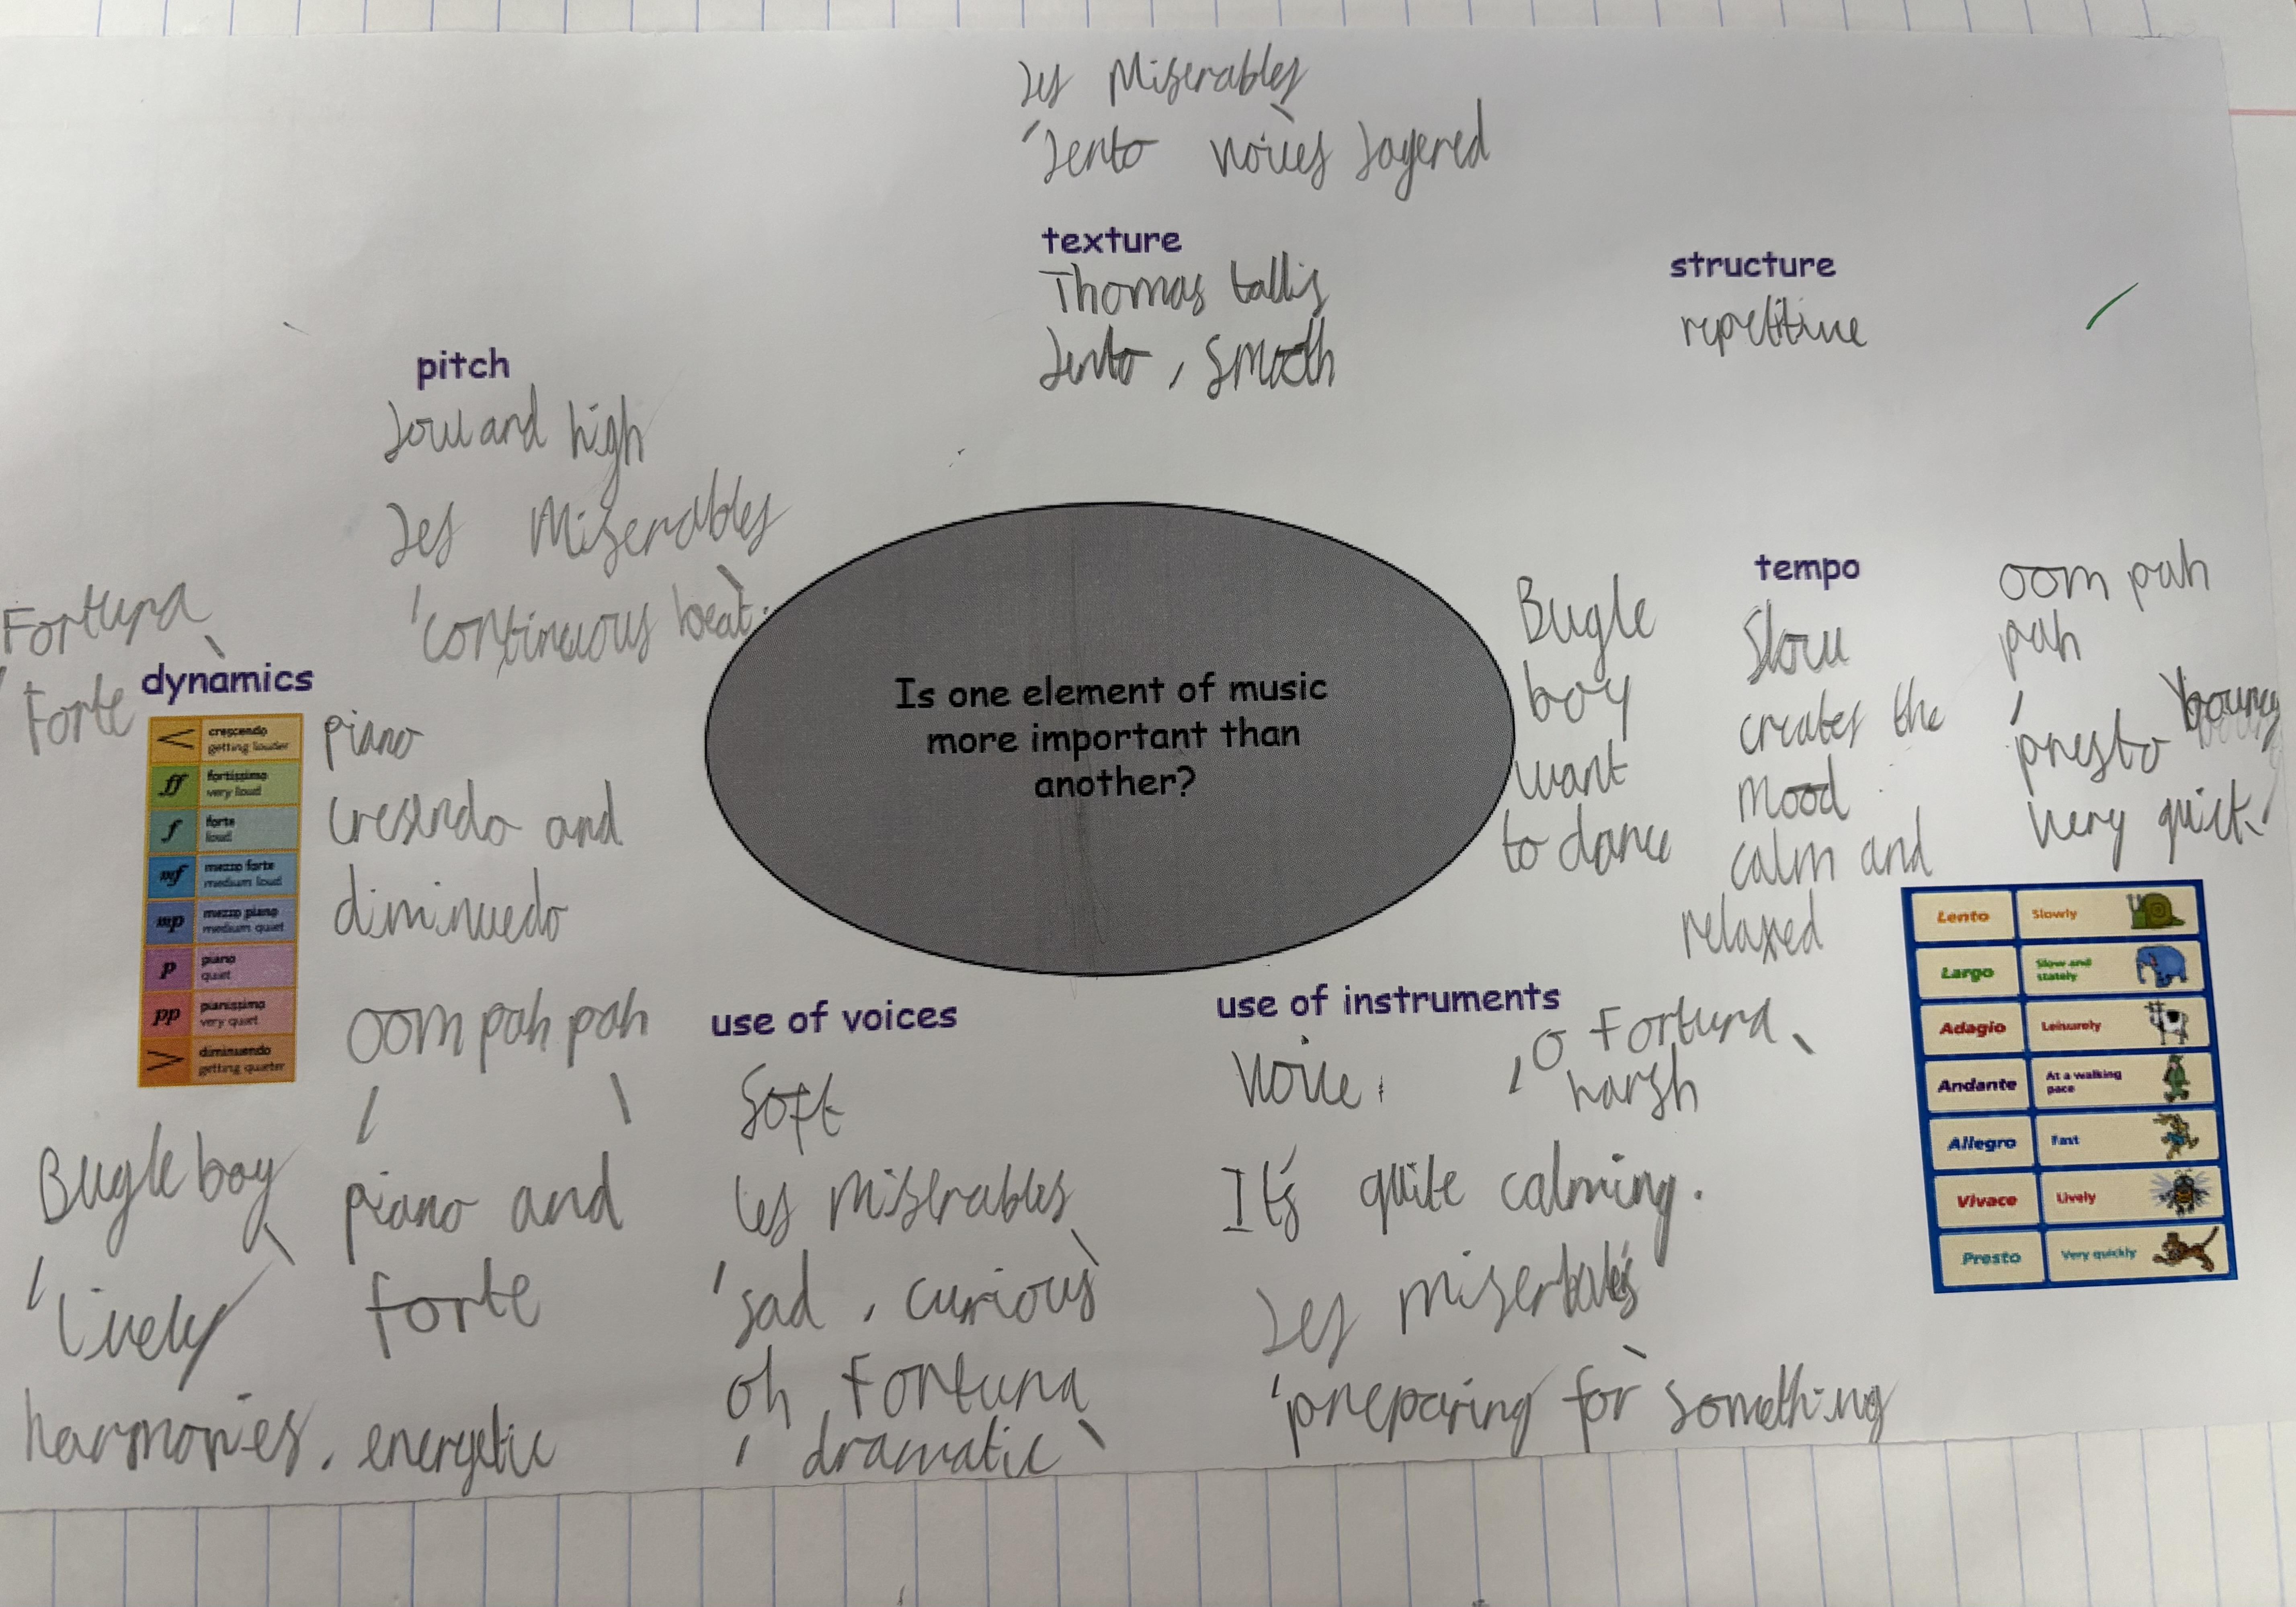 Les Miserables
'Lento voices layered
texture
Thomas tallis
Lento, smooth
structure
repetitive
pitch
Low and high
Les Miserables
'continuous beat.
Fortuna
Forte
dynamics
< crescendo getting louder
ff fortissimo very loud
f forte loud
mf mezzo forte medium loud
mp mezzo piano medium quiet
p piano quiet
pp pianissimo very quiet
> diminuendo getting quieter
piano
cresendo and
diminuedo
oom pah pah
piano and
forte
Bugle boy
'lively
harmonies, energetic
Is one element of music
more important than
another?
use of voices
Soft
les miserables
'sad, curious'
oh Fortuna
'dramatic'
use of instruments
Voice,
O Fortuna
harsh
It's quite calming.
Les miserbales
'preparing for something
Bugle
boy
want
to dance
tempo
Slow
creates the
mood
calm and
relaxed
oom pah
pah
'presto bouncy
very quick
Lento Slowly
Largo Slow and stately
Adagio Leisurely
Andante At a walking pace
Allegro Fast
Vivace Lively
Presto Very quickly